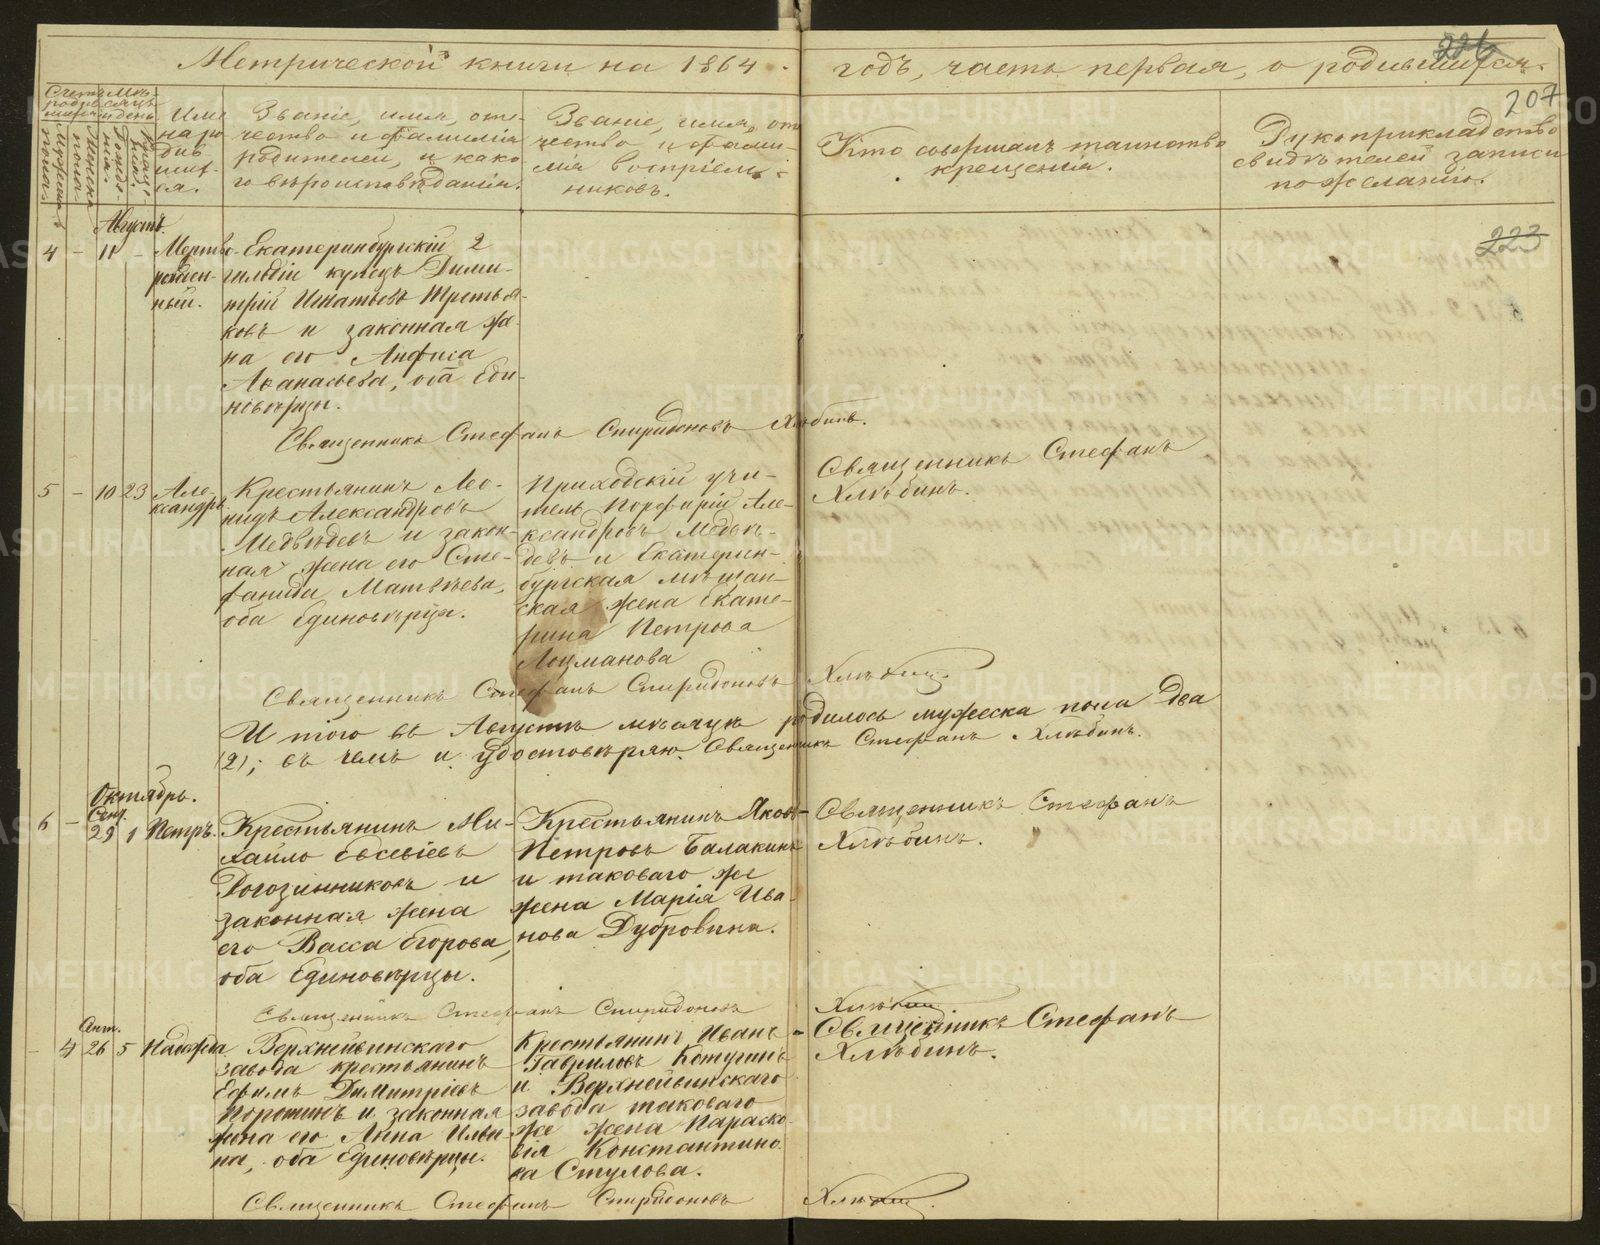 Метрической книги на 1864
годъ, часть первая, о родившихся.
226
207
Счетъ
родив
шихся
Мѣ-
сяцъ
и день
Мужеска
пола.
Женска
пола.
Рожде-
нія.
Креще-
нія.
Име
на ро
див
ших-
ся.
Званіе, имя, оте-
чество и фамилія
родителей, и како
го вѣроисповѣданія.
Званіе, имя, от
чество и фами-
лія воспріем-
никовъ.
Кто совершалъ таинство
крещенія.
Рукоприкладство
свидѣтелей записи
по желанію.
Августъ.
223
4 - 11 - Мертво
рожден-
ный.
Екатеринбургскій 2
гильдіи купецъ Дими-
трій Игнатьевъ Третья-
ковъ и законная же-
на его Анфиса
Аѳанасьева, оба Еди-
новѣрцы.
Священникъ Стефанъ Спиридоновъ Хлѣбинъ.
5 - 10 23 Але-
ксандръ.
Крестьянинъ Лео-
нидъ Александровъ
Медвѣдевъ и закон-
ная жена его Сте-
фанида Матвѣева,
оба Единовѣрцы.
Приходскій учи-
тель Порфирій Але-
ксандровъ Медвѣ-
девъ и Екатерин-
бургская мѣщан-
ская жена Екате-
рина Петрова
Лоцманова
Священникъ Стефанъ
Хлѣбинъ.
Священникъ Стефанъ Спиридоновъ Хлѣбинъ.
И того въ Августѣ мѣсяцѣ родилось мужеска пола два
(2); въ чемъ и удостовѣряю. Священникъ Стефанъ Хлѣбинъ.
Октябрь.
Сент.
6 - 29 1 Петръ.
Крестьянинъ Ми-
хайло Евсевіевъ
Рогозинниковъ и
законная жена
его Васса Егорова,
оба Единовѣрцы.
Крестьянинъ Яковъ
Петровъ Балакинъ
и таковаго же
жена Марія Ива-
нова Дубровина.
Священникъ Стефанъ
Хлѣбинъ.
Священникъ Стефанъ Спиридоновъ Хлѣбинъ.
Сент.
- 4 26 5 Надежда
Верхнейвинскаго
завода крестьянинъ
Ефимъ Димитріевъ
Порошинъ и законная
жена его Анна Ильи-
на, оба Единовѣрцы.
Крестьянинъ Иванъ
Гавриловъ Котугинъ
и Верхнейвинскаго
завода таковаго
же жена Параско-
вія Константино-
ва Стулова.
Священникъ Стефанъ
Хлѣбинъ.
Священникъ Стефанъ Спиридоновъ Хлѣбинъ.